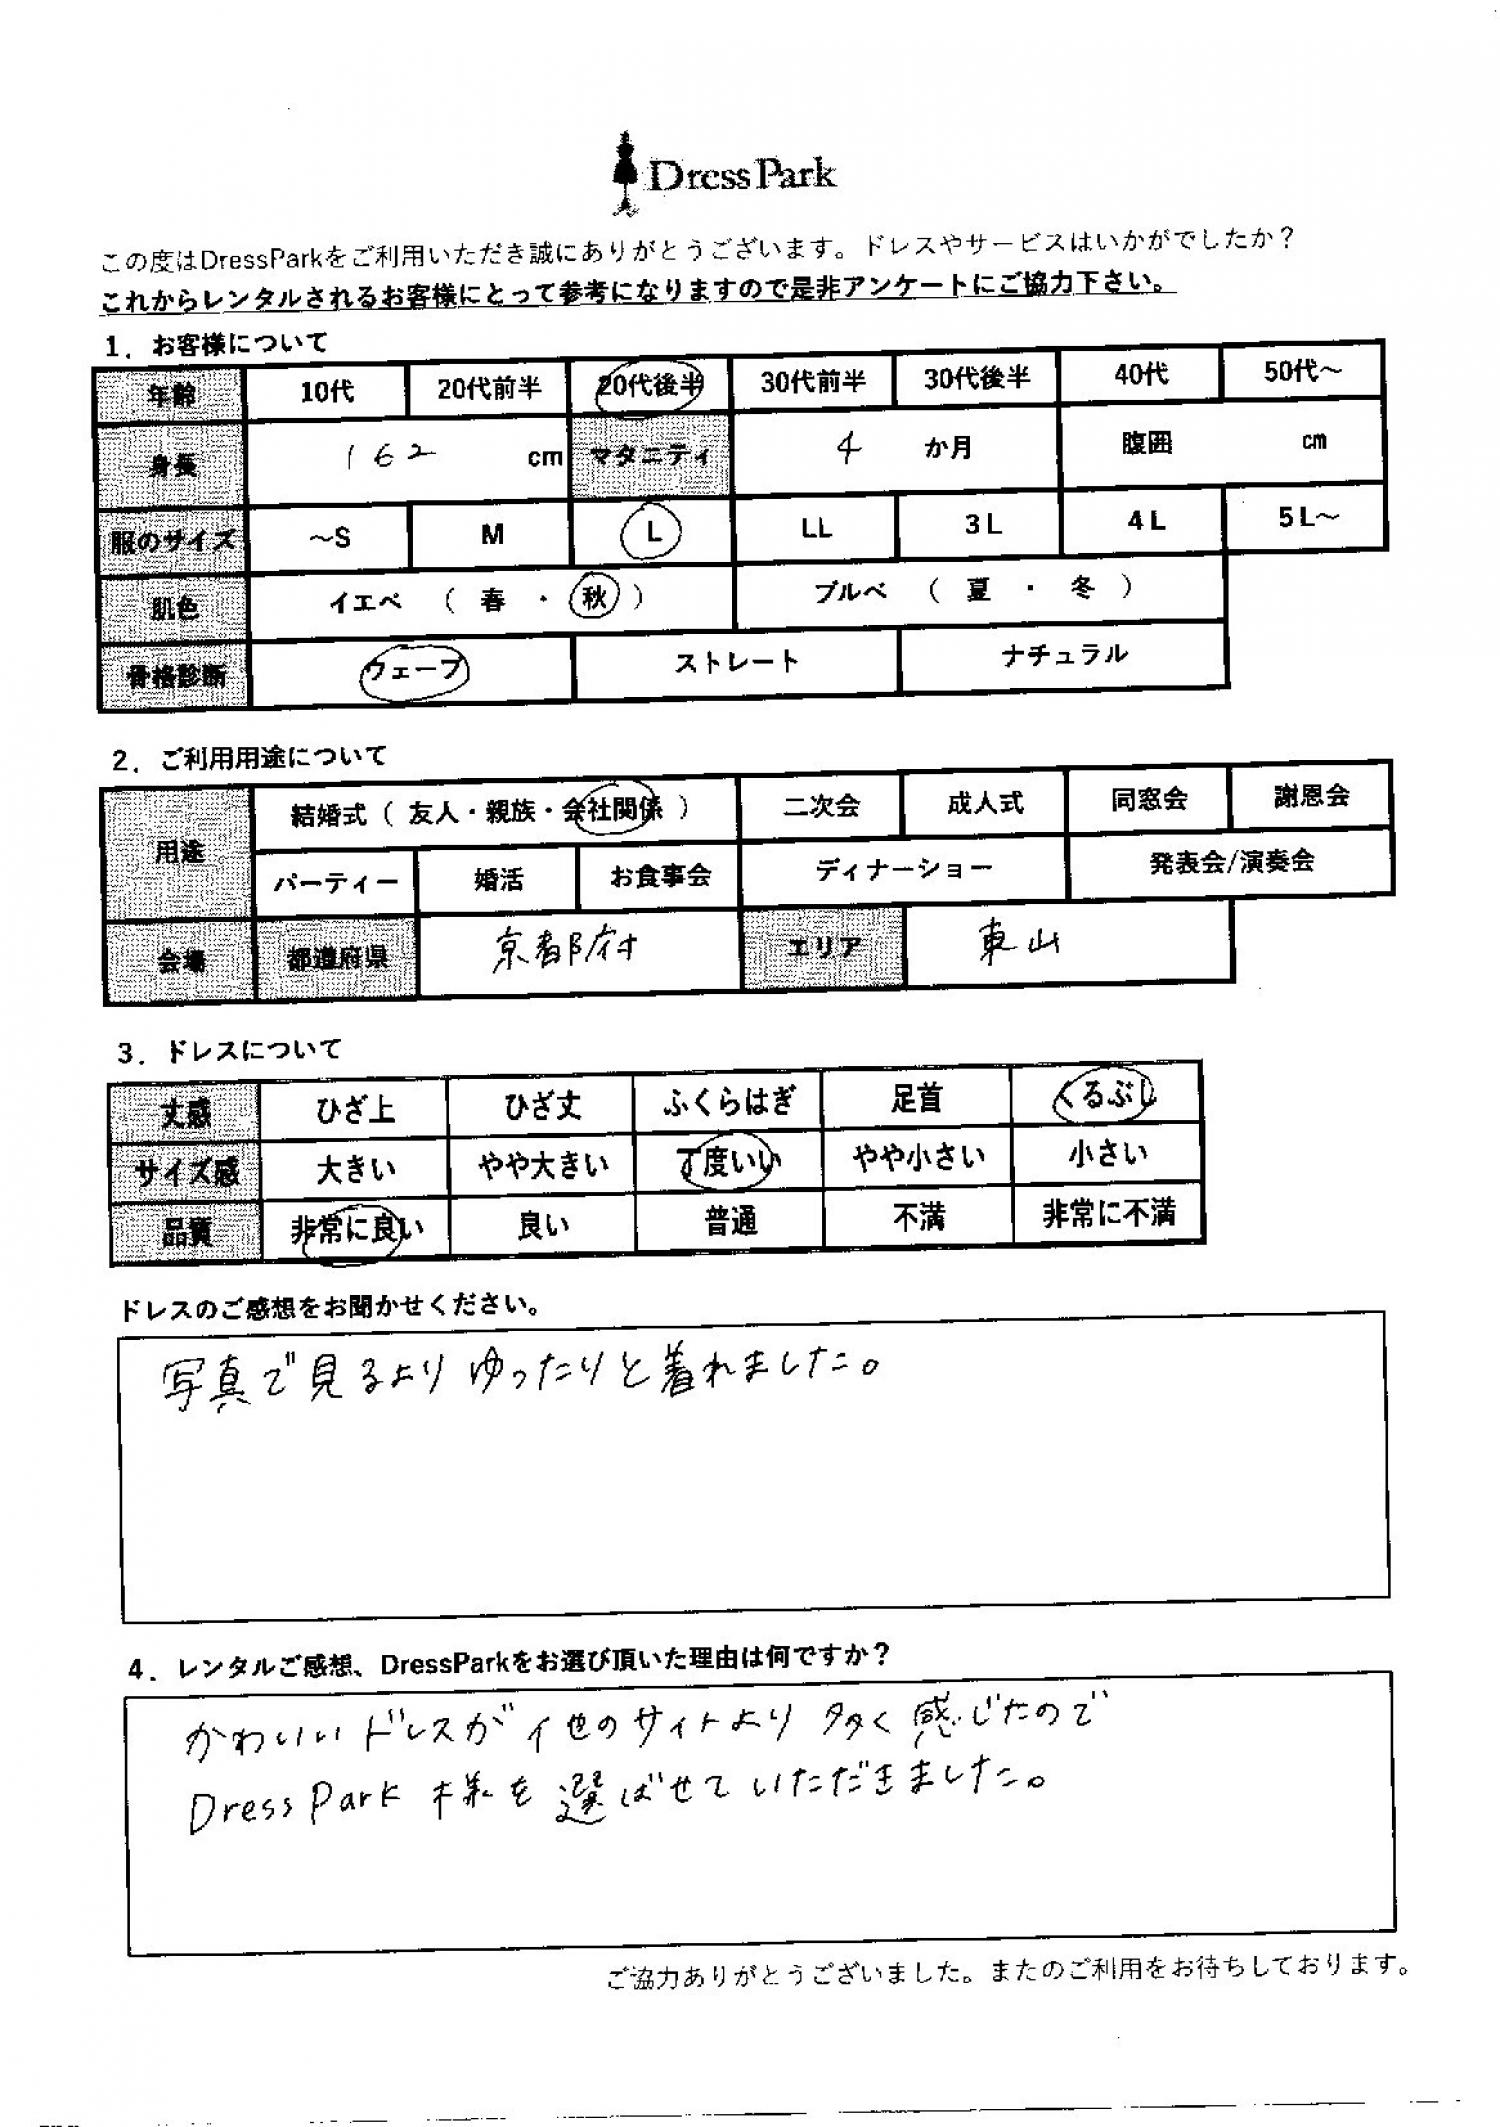 DressPark
この度はDressParkをご利用いただき誠にありがとうございます。ドレスやサービスはいかがでしたか？
これからレンタルされるお客様にとって参考になりますので是非アンケートにご協力下さい。
1．お客様について
年齢 10代 20代前半 20代後半 30代前半 30代後半 40代 50代～
身長 162 cm マタニティ 4 か月 腹囲 cm
服のサイズ ～S M L LL 3L 4L 5L～
肌色 イエベ（ 春 ・ 秋 ） ブルベ（ 夏 ・ 冬 ）
骨格診断 ウェーブ ストレート ナチュラル
2．ご利用用途について
用途 結婚式（ 友人・親族・会社関係 ） 二次会 成人式 同窓会 謝恩会
パーティー 婚活 お食事会 ディナーショー 発表会/演奏会
会場 都道府県 京都府 エリア 東山
3．ドレスについて
丈感 ひざ上 ひざ丈 ふくらはぎ 足首 くるぶし
サイズ感 大きい やや大きい 丁度いい やや小さい 小さい
品質 非常に良い 良い 普通 不満 非常に不満
ドレスのご感想をお聞かせください。
写真で見るよりゆったりと着れました。
4．レンタルご感想、DressParkをお選び頂いた理由は何ですか？
かわいいドレスが他のサイトより多く感じたので
DressPark様を選ばせていただきました。
ご協力ありがとうございました。またのご利用をお待ちしております。